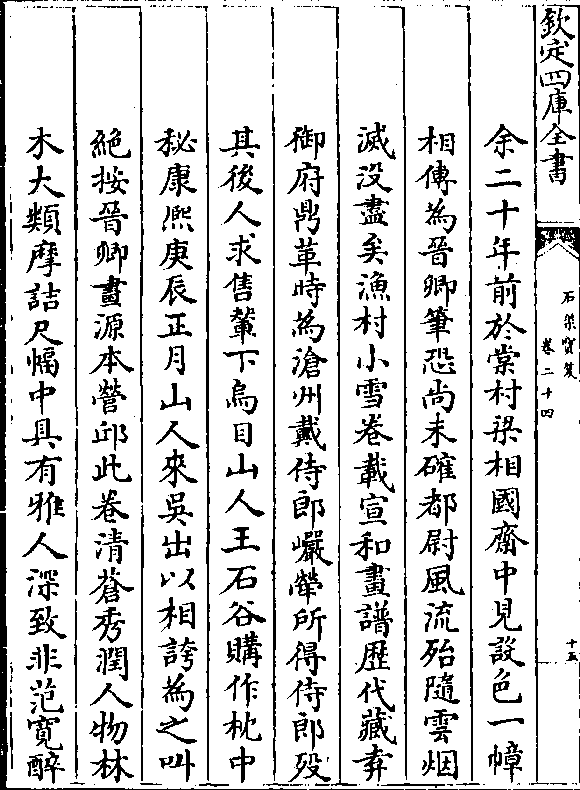 欽定四庫全書
石渠寶笈
卷二十四
十五
余二十年前於棠村梁相國齋中見設色一幛
相傳為晉卿筆恐尚未確都尉風流殆隨雲烟
滅没盡矣漁村小雪卷載宣和畫譜歴代藏弆
御府鼎革時為滄州戴侍郎巗犖所得侍郎殁
其後人求售輦下烏目山人王石谷購作枕中
秘康熙庚辰正月山人來吳出以相誇為之叫
絶按晉卿畫源本營邱此卷清蒼秀潤人物林
木大類摩詰尺幅中具有雅人深致非范寛醉